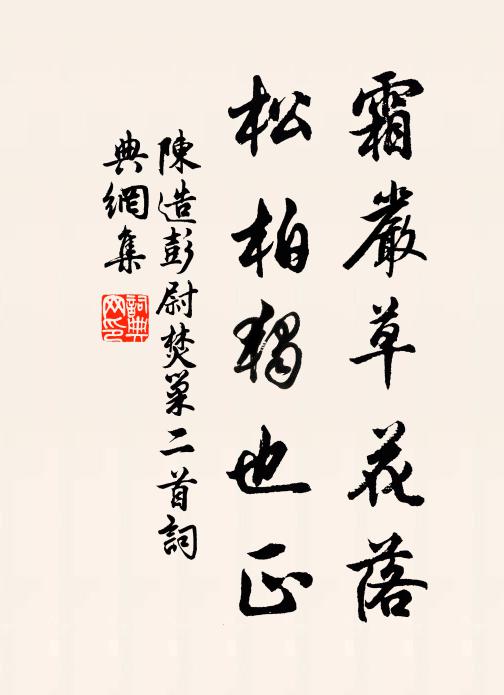 霜嚴草花落
松柏獨也正
陳造彭尉焚巢二首詞
典網集
詞典網印